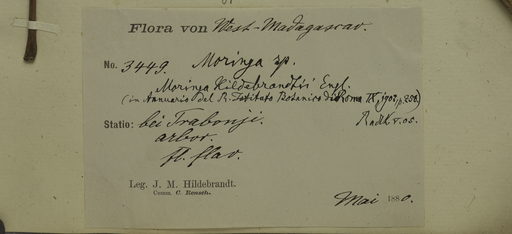 Flora von West-Madagascar.
No. 3449. Moringa sp.
Moringa Hildebrandtii Engl.
(in Annuario del R. Istituto Botanico di Roma IX, 1902, p. 258)
Statio: bei Trabonji. Radlk.
arbor.
fl. flav.
Leg. J. M. Hildebrandt.
Comm. C. Rensch.
Mai 1880.